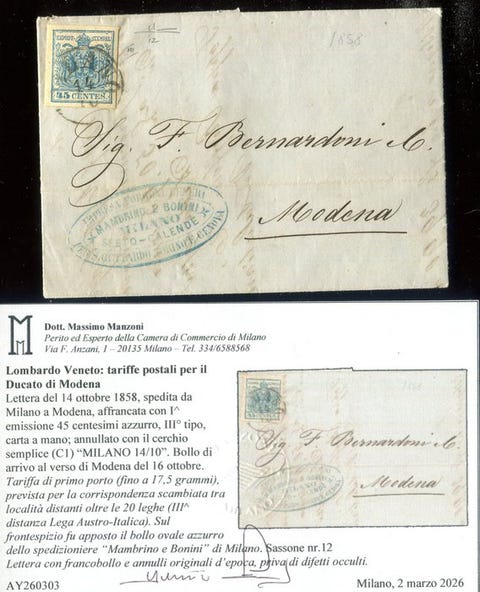 11
12
1858
45 CENTES.
14
10
Sig. F. Bernardoni C.
MAMBRINO E BONINI
MILANO
SESTO-CALENDE
Modena
Dott. Massimo Manzoni
Perito ed Esperto della Camera di Commercio di Milano
Via F. Anzani, 1 – 20135 Milano – Tel. 334/6588568
Lombardo Veneto: tariffe postali per il
Ducato di Modena
Lettera del 14 ottobre 1858, spedita da
Milano a Modena, affrancata con I^
emissione 45 centesimi azzurro, III° tipo,
carta a mano; annullato con il cerchio
semplice (C1) “MILANO 14/10”. Bollo di
arrivo al verso di Modena del 16 ottobre.
Tariffa di primo porto (fino a 17,5 grammi),
prevista per la corrispondenza scambiata tra
località distanti oltre le 20 leghe (III^
distanza Lega Austro-Italica). Sul
frontespizio fu apposto il bollo ovale azzurro
dello spedizioniere “Mambrino e Bonini” di Milano. Sassone nr.12
Lettera con francobollo e annulli originali d’epoca, priva di difetti occulti.
AY260303
Milano, 2 marzo 2026
1858
Sig. F. Bernardoni C.
Modena